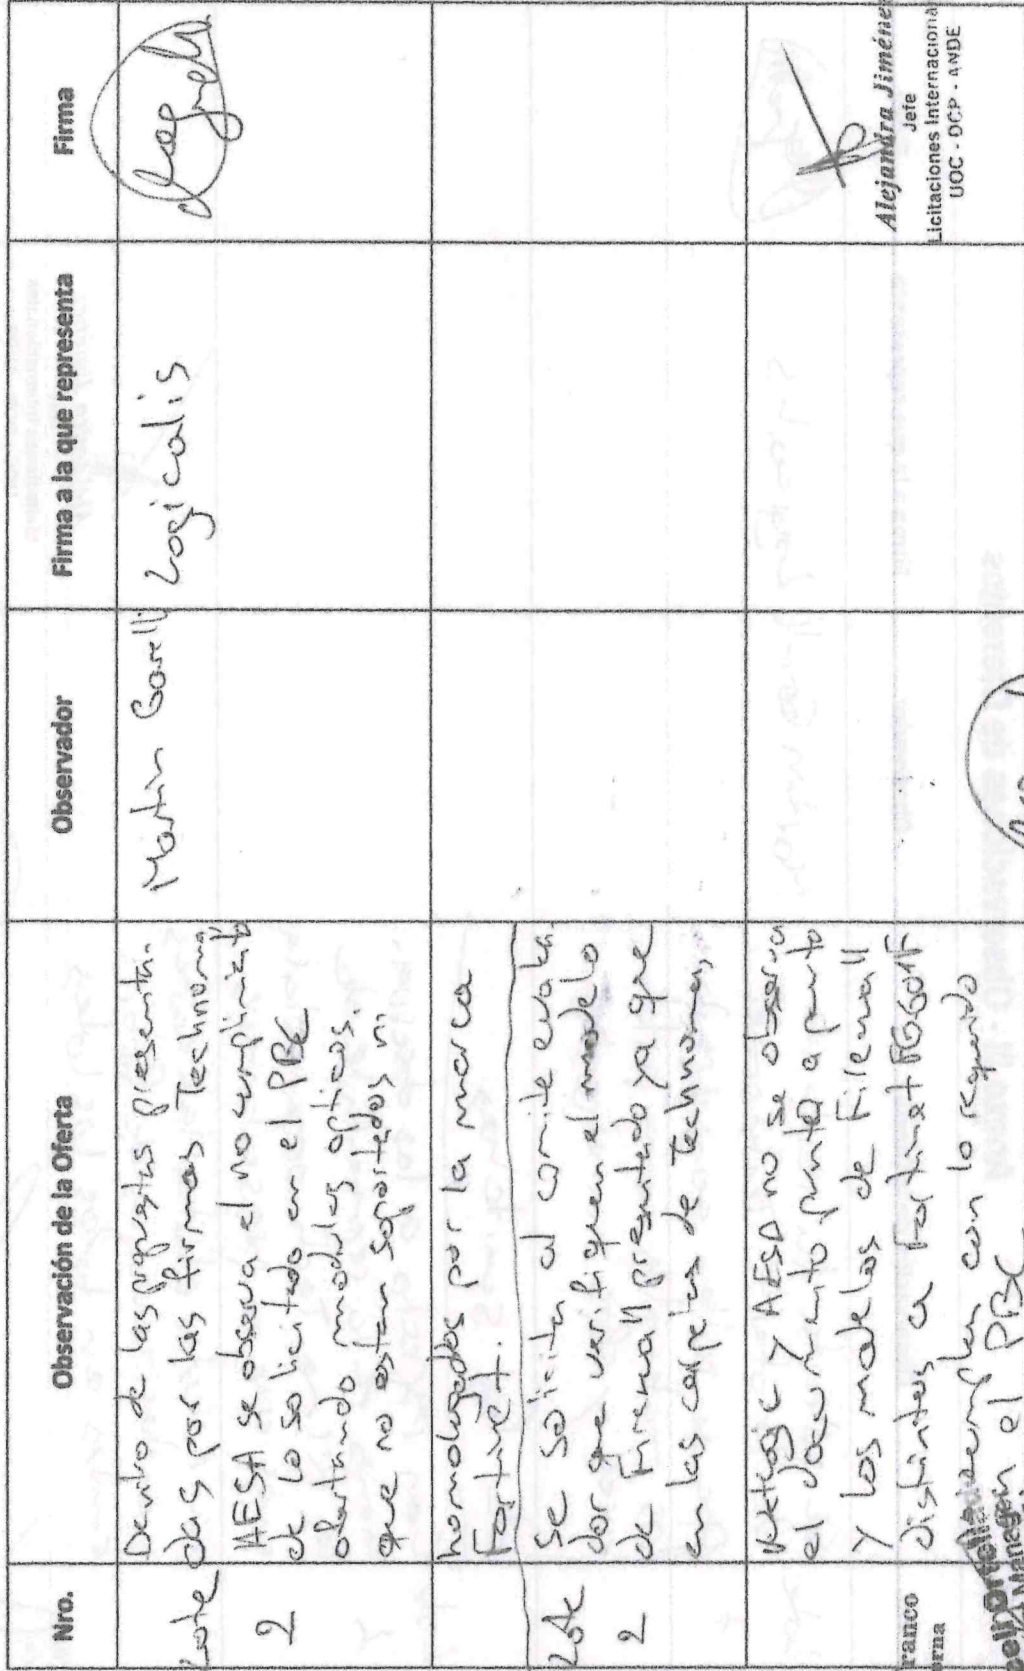 Nro.
Observación de la Oferta
Observador
Firma a la que representa
Firma
Lote
2
Dentro de las propuestas presenta-
das por las firmas Technoma,
AESA se observa el no cumplimiento
de lo solicitado en el PBC
ofertando modulos opticos,
que no estan soportados ni
Martin
Logicalis
homologados por la marca
Fortinet.
Lote
2
Se solicita al comite evalua
dor que verifiquen el modelo
de Firewall presentado ya que
en las carpetas de Technoma,
y AESA no se observa
el documento punto a punto
y los modelos de Firewall
distintos a Fortinet FG601F
con lo requerido
en el PBC
Alejandra Jiméne
Jefe
Licitaciones Internaciona
UOC - DCP - ANDE
ranco
erna